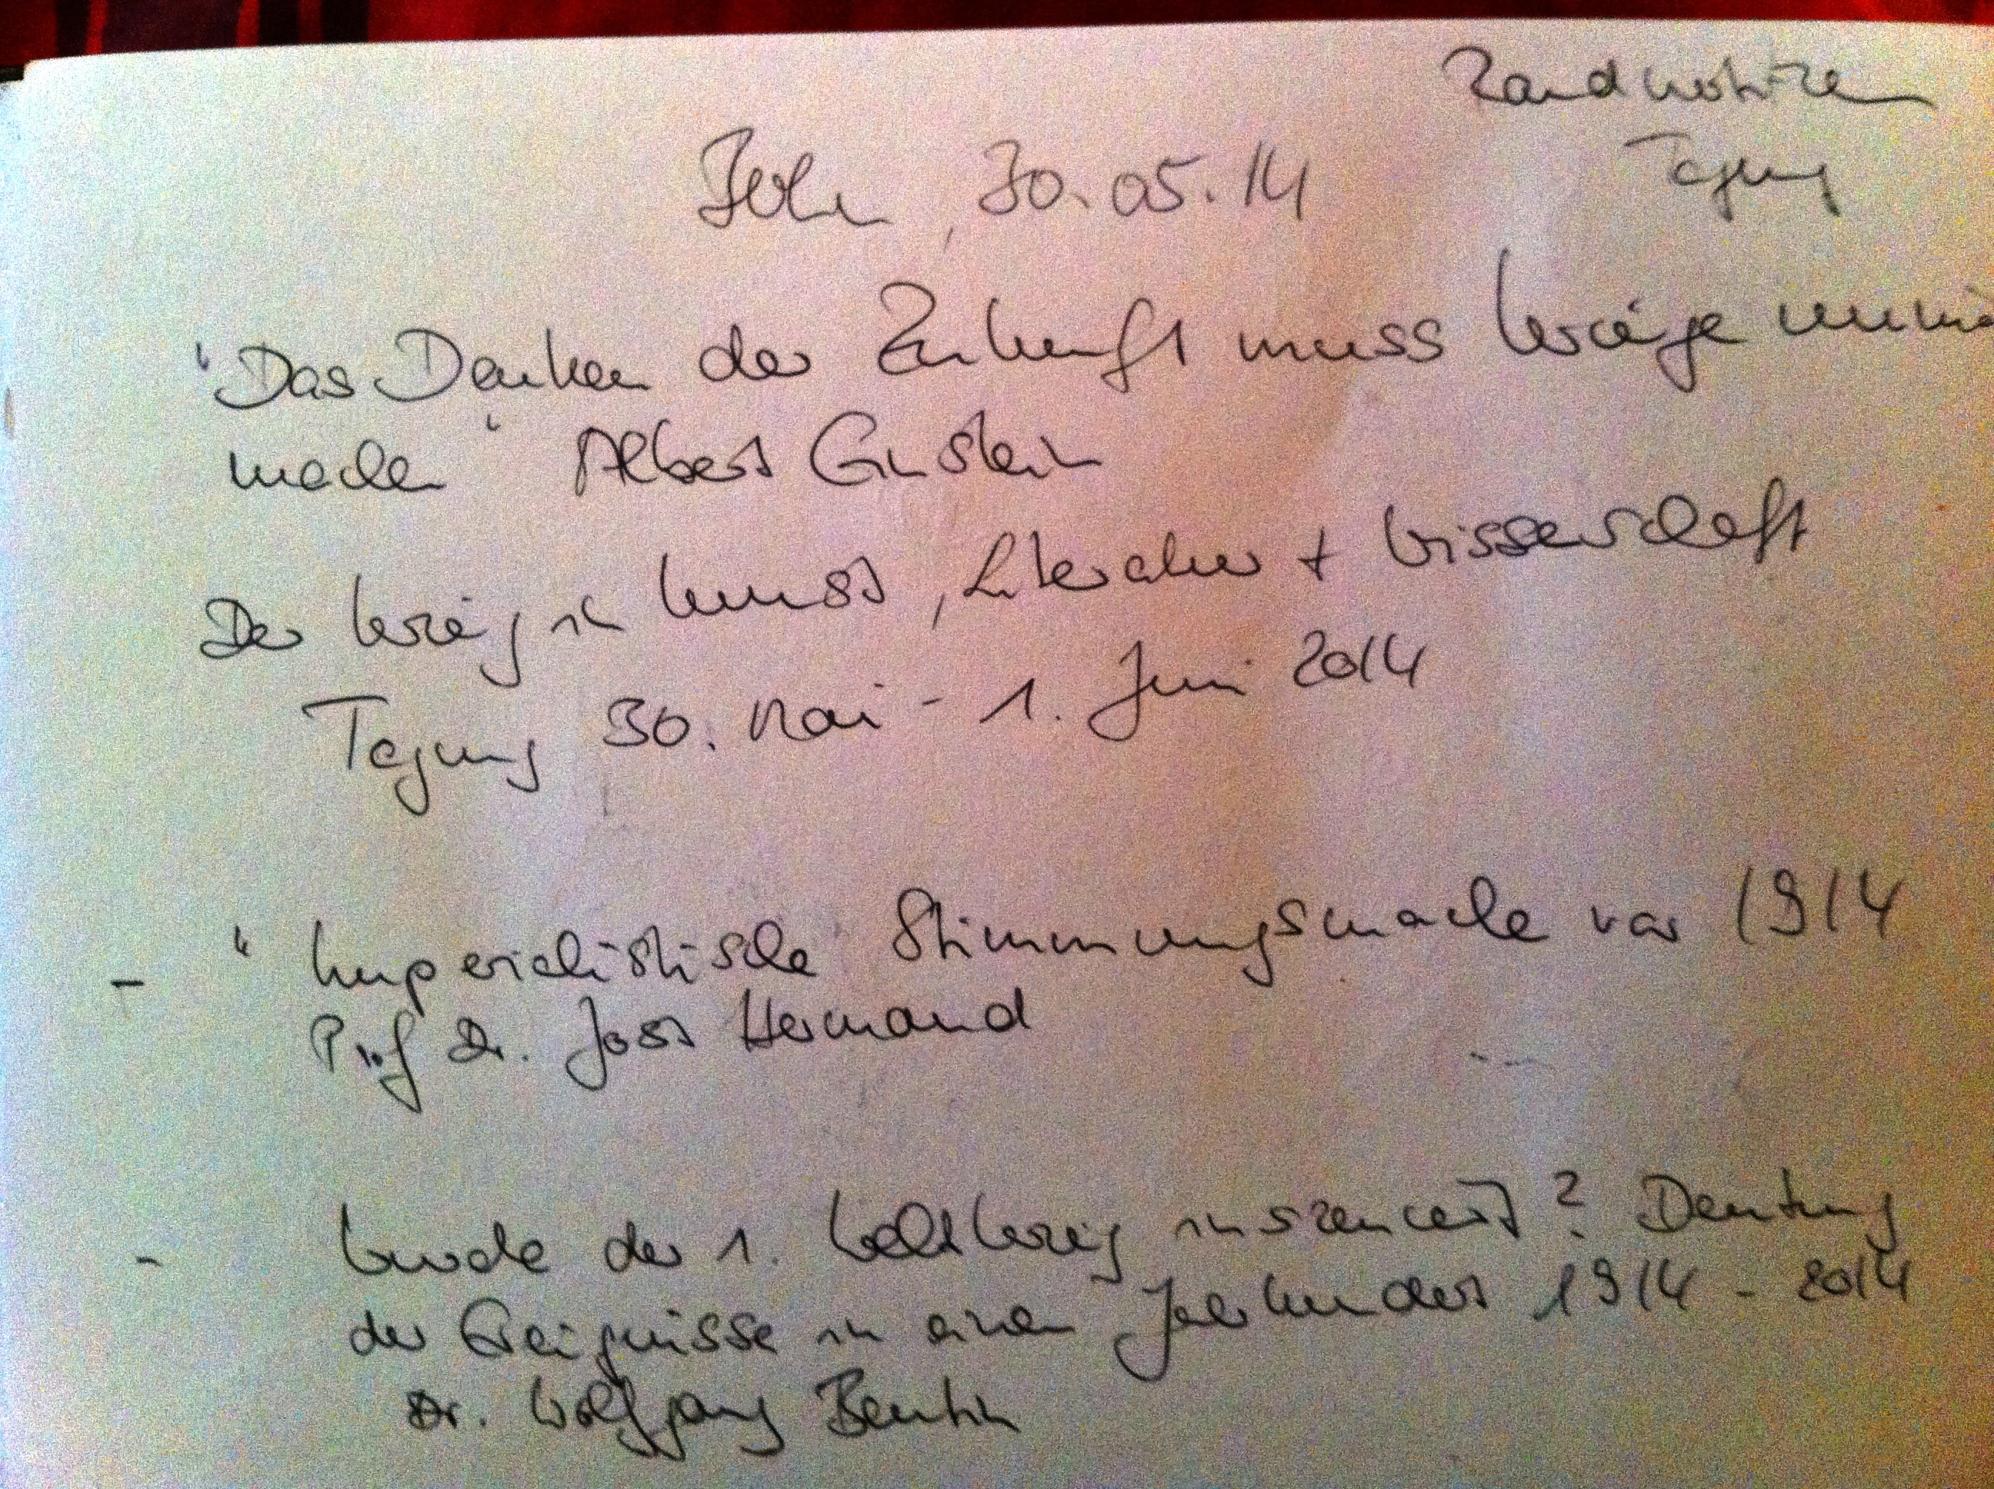 Randnotizen
Tagung
30.05.14
"Das Denken der Zukunft muss Kriege
machen" Albert Einstein
Der Krieg in Kunst, Literatur + Wissenschaft
Tagung 30. Mai - 1. Juni 2014
- "Imperialistische Stimmungsmache vor 1914
Prof Dr. Jost Hermand
- Wurde der 1. Weltkrieg inszeniert? Deutung
der Ereignisse in einem Jahrhundert 1914 - 2014
Dr. Wolfgang Beutin